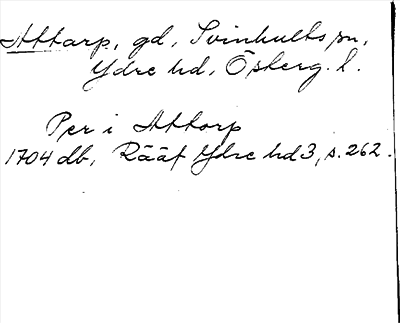 Attarp, gd, Svinhults sn,
Ydre hd, Österg. l.
Per i Attorp
1704 db, Rääf Ydre hd 3, s. 262.